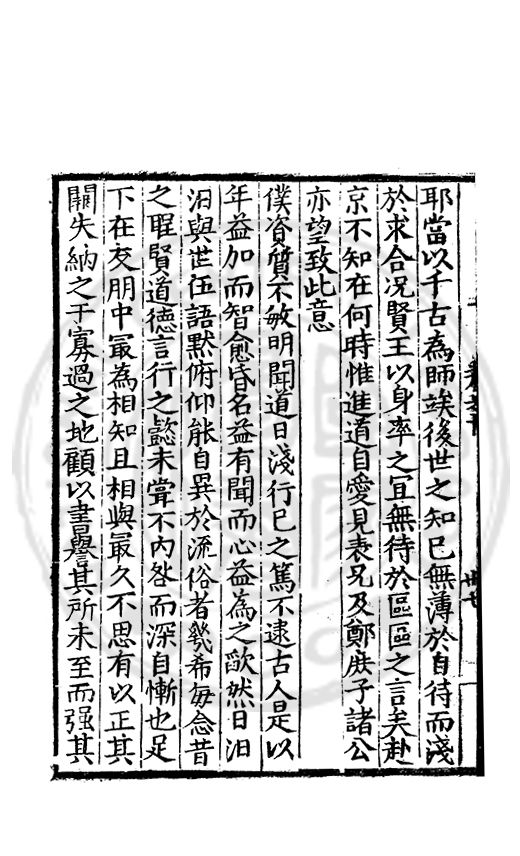 耶當以千古為師竢後世之知已無薄於自待而淺
於求合况賢王以身率之冝無待於區區之言矣赴
京不知在何時惟進道自愛見表兄及鄭庶子諸公
亦望致此意
僕資質不敏明聞道日淺行已之篤不逮古人是以
年益加而智愈昏名益有聞而心益為之歐然日汨
汨與世伍語默俯仰能自異於流俗者幾希每念昔
之聖賢道德言行之懿未甞不内咎而深自慚也足
下在友朋中最為相知且相與最久不思有以正其
闕失納之于寡過之地顧以書譽其所未至而强其